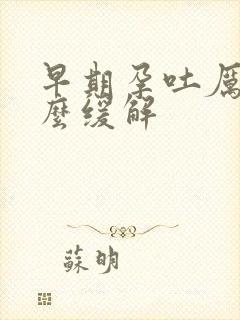 早期孕吐厉
麼缓解
蘇明